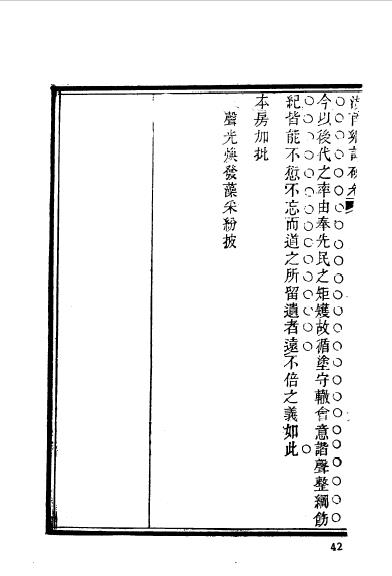 今以後代之率由奉先民之矩矱故循塗守轍會意諧聲整綱飭
紀皆能不愆不忘而道之所留遺者遠不倍之義如此
本房加批
聲光煥發藻采紛披
42